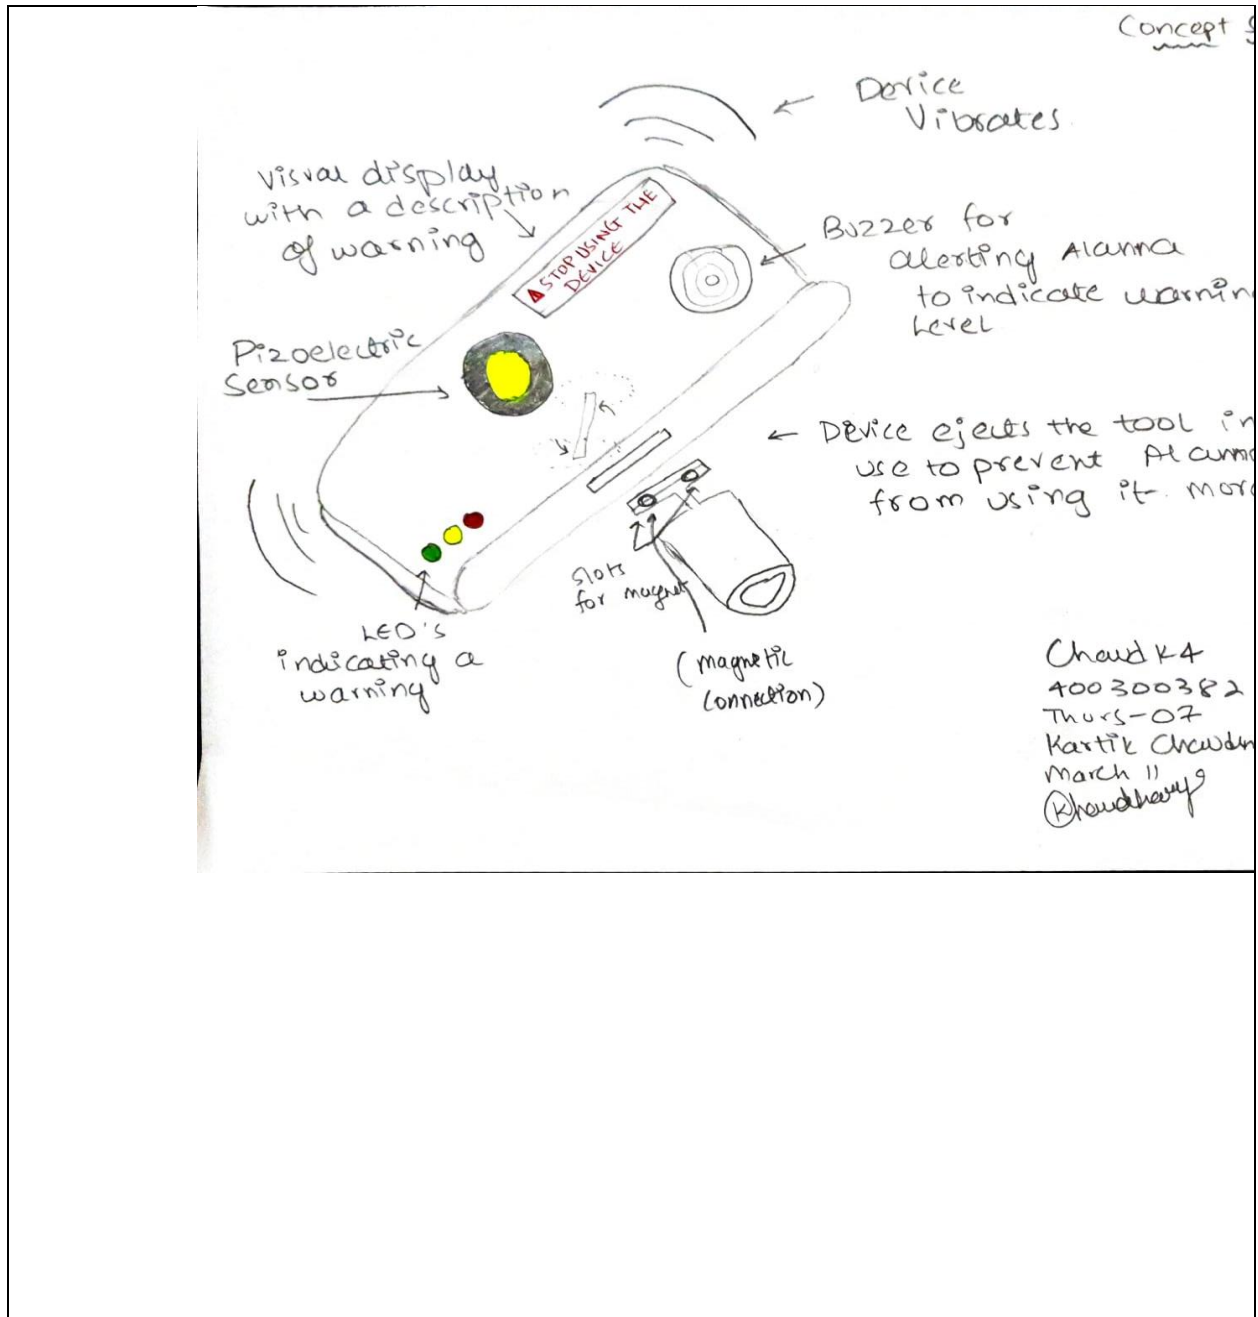 Concept
Device
Vibrates
Visual display
with a description
of warning
⚠ STOP USING THE
DEVICE
Buzzer for
alerting Alanna
to indicate warnin
Level
Pizoelectric
Sensor
← Device ejects the tool in
use to prevent Alanna
from using it more
Slots
for magnet
LED's
indicating a
warning
(magnetic
connection)
Chaudk4
400300382
Thurs-07
Kartik
March 11